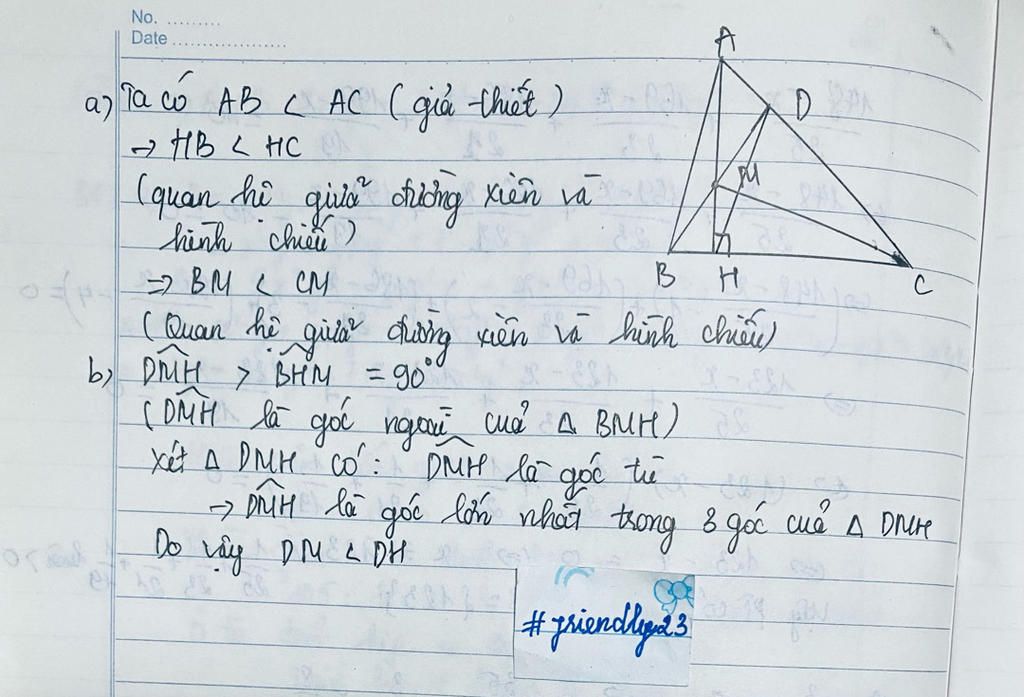 No. .........
Date ...................
a) Ta có AB < AC (giả thiết)
→ HB < HC
(quan hệ giữa đường xiên và
hình chiếu)
=> BM < CM
(Quan hệ giữa đường xiên và hình chiếu)
b) DMH > BHM = 90°
(DMH là góc ngoài của Δ BMH)
Xét Δ DMH có: DMH là góc tù
→ DMH là góc lớn nhất trong 3 góc của Δ DMH
Do vậy DM < DH
A
D
M
B
H
C